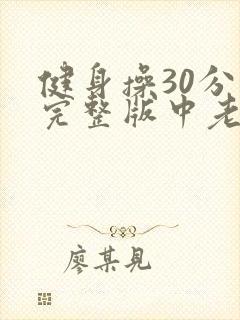 健身操30分
完整版中老
廖某見